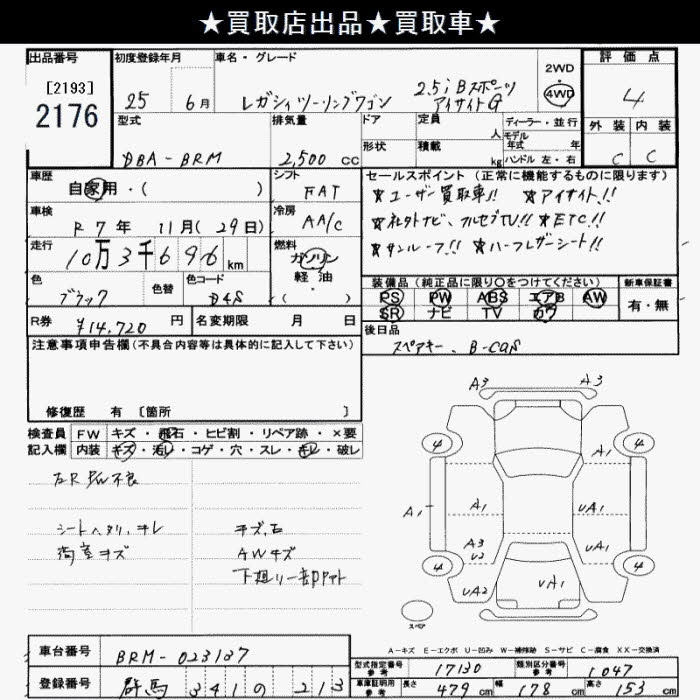 ★買取店出品★買取車★
出品番号 [2193] 2176
初度登録年月 25 6月
車名・グレード レガシィツーリングワゴン 2.5i Bスポーツ アイサイトG
2WD・4WD
評価点 4
外装 内装
C C
型式 DBA-BRM
排気量 2,500 cc
ドア 形状
定員 人
積載 kg
ディーラー・並行
モデル年式 年
ハンドル 左・右
車歴 自家用・( )
シフト FAT
車検 R7年 11月(29日)
冷房 AA/C
走行 10万3千696km
燃料 ガソリン 軽油・( )
色 ブラック
色替
色コード D4S
R券 ¥14,720円
名変期限 月 日
セールスポイント(正常に機能するものに限ります)
★ユーザー買取車!! ★アイサイト!!
★社外ナビ、フルセグTV!! ★ETC!!
★サンルーフ!! ★ハーフレザーシート!!
装備品(純正品に限り○をつけてください)
PS PW ABS エアB AW
SR ナビ TV カワ
新車保証書 有・無
後日品
スペアキー、B-CAS
注意事項申告欄(不具合内容等は具体的に記入して下さい)
修復歴 有 [箇所 ]
検査員記入欄
FW キズ・飛石・ヒビ割・リペア跡・×要
内装 キズ・汚レ・コゲ・穴・スレ・キレ・破レ
左R P/W不良
シートヘタリ、キレ
荷室キズ
キズ、石
AWキズ
下廻り一部
A3 A3
4 4
A1
A1 A1 UA1
A3
U2 UA1
4 4
UA2 UA1
スペア
A-キズ E-エクボ U-凹み W-補修跡 S-サビ C-腐食 XX-交換済
車台番号 BRM-023137
登録番号 群馬 341 の 213
型式指定番号 参考 17130
類別区分番号 参考 1047
車庫証明用 参考 長さ 479cm 幅 178cm 高さ 153cm